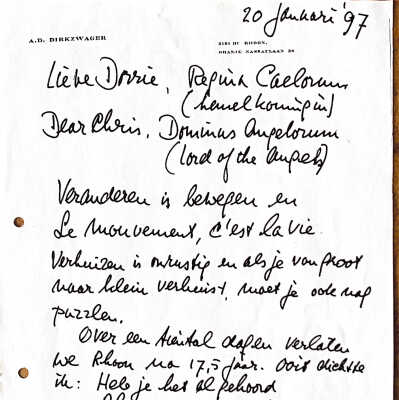 20 Januari '97
A.D. DIRKZWAGER
3161 HC RHOON,
ORANJE NASSAULAAN 26
Lieve Dorrie, Regina Caelorum
(hemelkoningin)
Dear Chris, Dominus Angelorum
(lord of the angels)
Veranderen is bewegen en
Le mouvement, c'est la vie.
Verhuizen is onrustig en als je van groot
naar klein verhuist, moet je ook nog
puzzlen.
Over een tiental dagen verlaten
we Rhoon na 17,5 jaar. Ooit dichtte
ik: Heb je het al gehoord